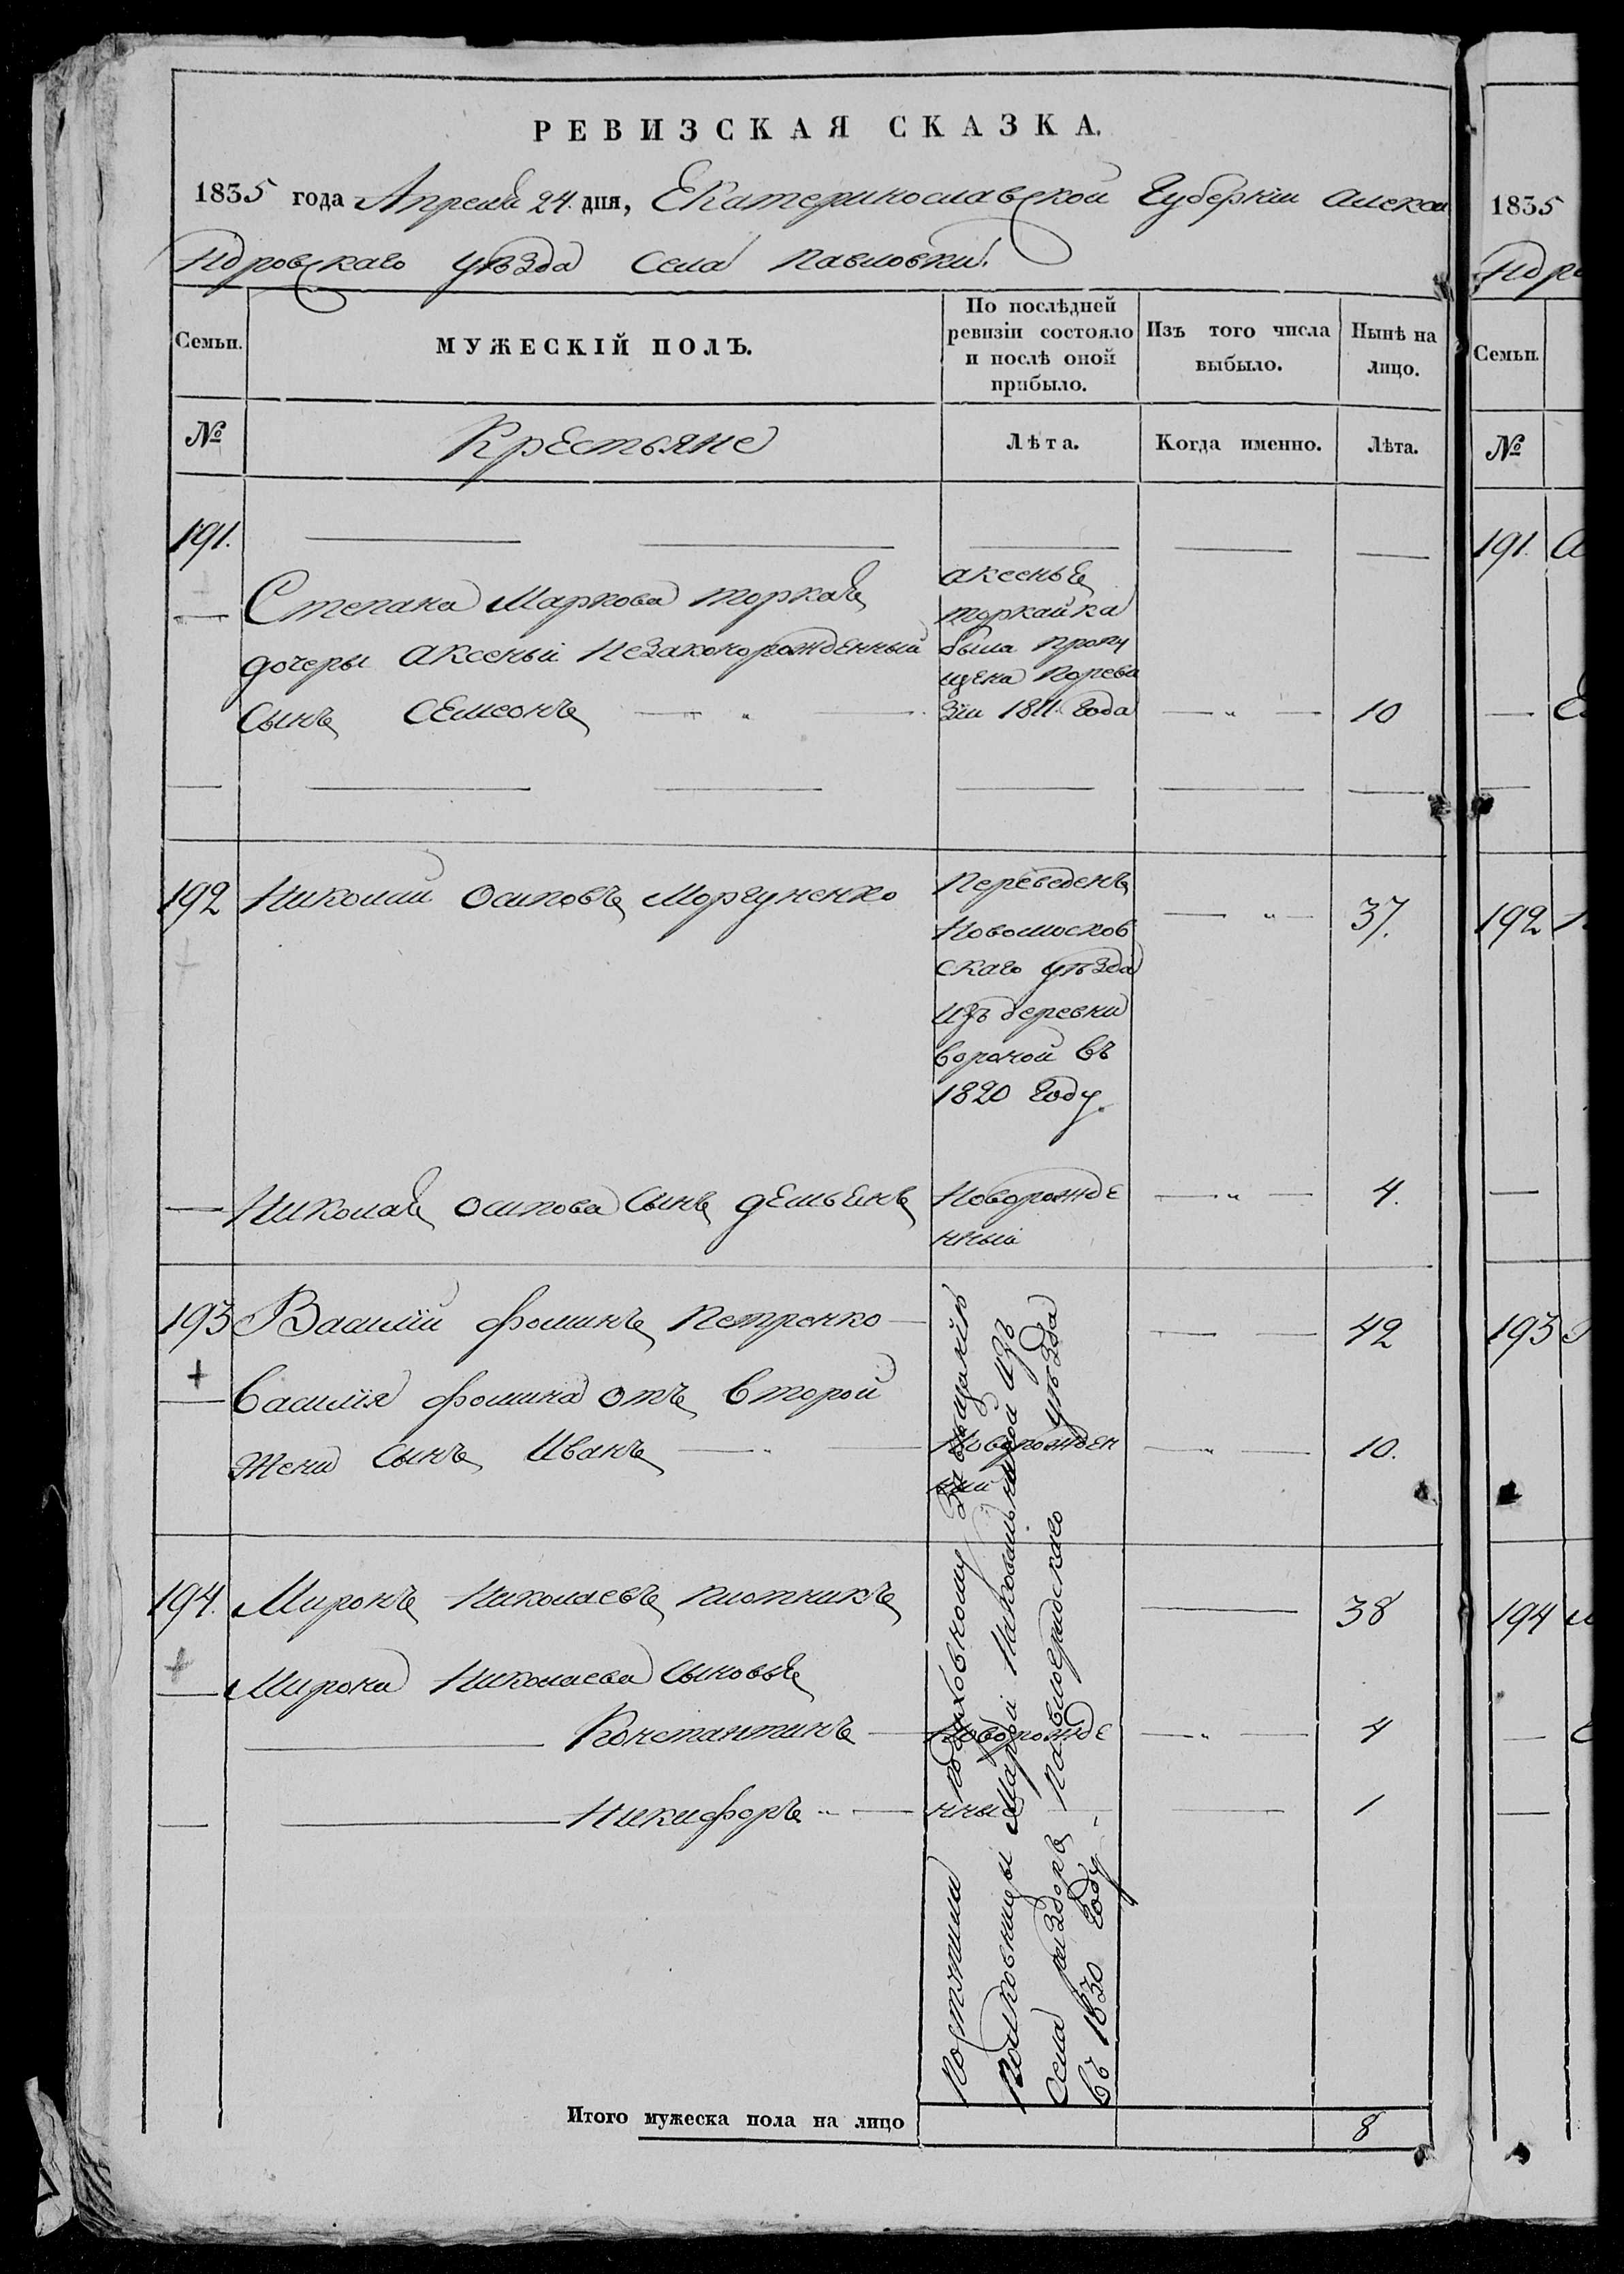 РЕВИЗСКАЯ СКАЗКА.
1835 года Апреля 24. дня, Екатеринославской Губернiи Алекса
ндровскаго уѣзда Села Павловки.
Семьи.
МУЖЕСКІЙ ПОЛЪ.
По послѣдней
ревизіи состояло
и послѣ оной
прибыло.
Изъ того числа
выбыло.
Нынѣ на
лицо.
№
Крестьяне
Лѣта.
Когда именно.
Лѣта.
191.
Степана Маркова торкая
дочеры Аксеньи Незаконорожденный
Сынъ Семеонъ
аксенья
торкайка
была пропу
щена поreви
зіи 1811. Года
10
192 Николай Осиповъ Моргуненко
Переведенъ
Новомосков
скаго уѣзда
изъ деревни
вороной въ
1820 Году.
37.
Николая осипова Сынъ демьенъ
Новорожде
нный
4.
193 Василій фоминъ Петренко
42
+
Василія фомина отъ второй
Жени Сынъ Иванъ
Новорожден
ный
10.
194. Миронъ Николаевъ плотникъ
38
+
Мирона Николаева Сыновья
Константинъ
Новорожде
4
Никифоръ
нные
1
Поступили
полковницы Марфи
Села раздоръ Павлоградскаго уѣзда
въ 1830 Году
Итого мужеска пола на лицо
8
1835
ндро
Семьи.
№
191. а
192
193
194